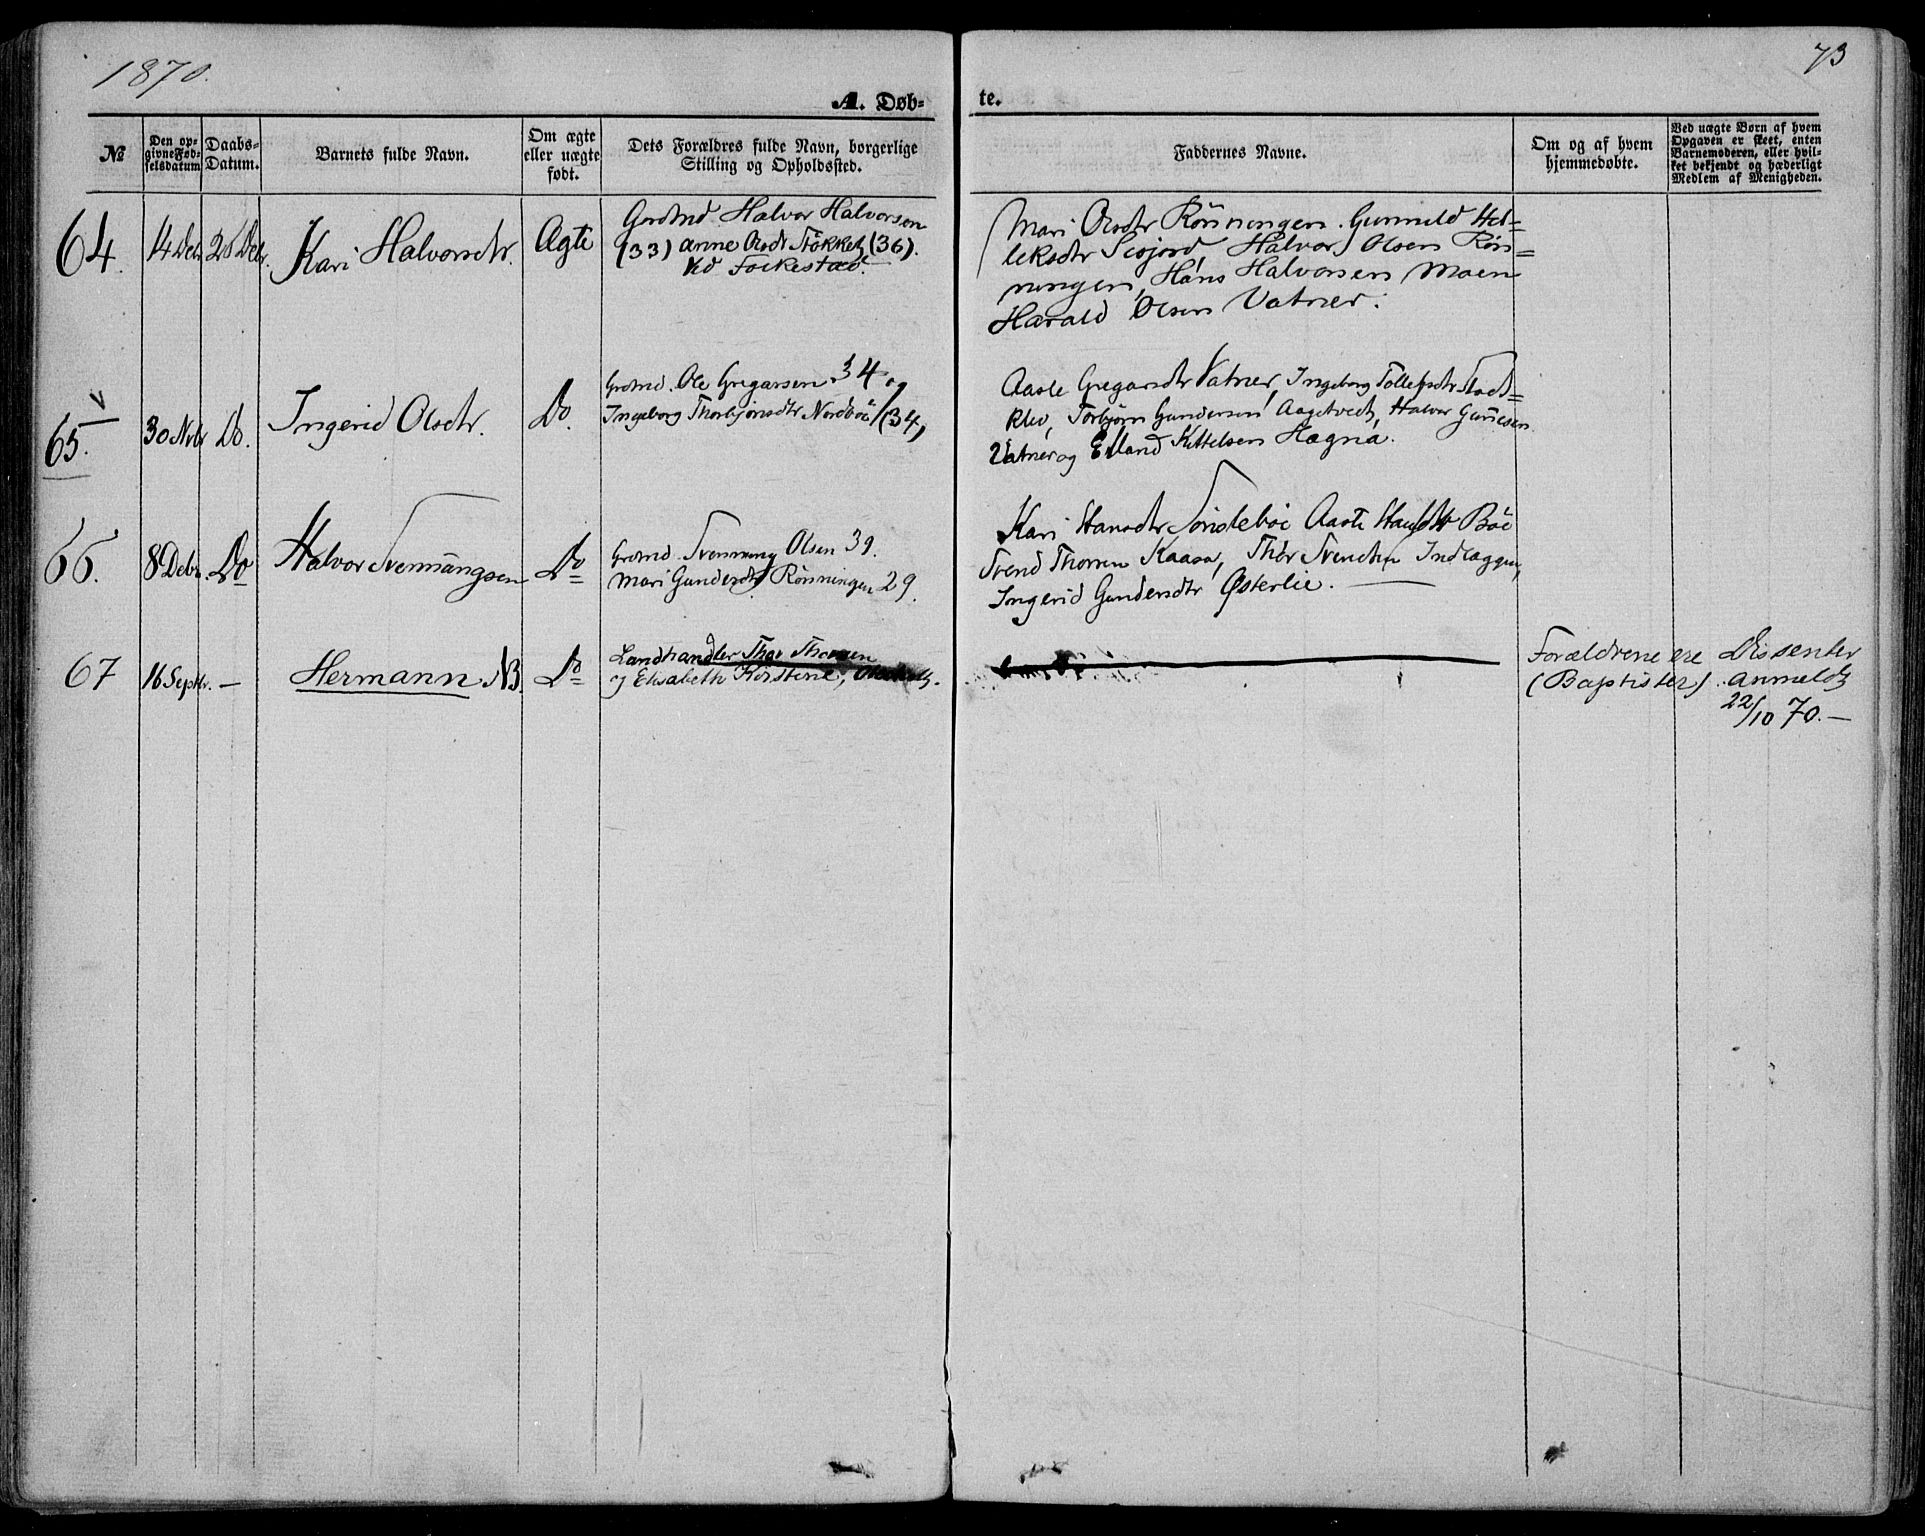 1870.
73
A. Døb-
te.
№
Den op-
givne Fød-
selsdatum
Daabs-
Datum.
Barnets fulde Navn.
Om ægte
eller uægte
født.
Dets Forældres fulde Navn, borgerlige
Stilling og Opholdssted.
Faddernes Navne.
Om og af hvem
hjemmedøbte.
Ved uægte Børn af hvem
Opgaven er skeet, enten
Barnemoderen, eller hvil-
ket bekjendt og hæderligt
Medlem af Menigheden.
64.
14 Debr
26 Debr.
Kari Halvorsdtr.
Ægte
Halvor Halvorsen
(33) Anne Olsdr (36).
ved Folkestad.
Mari Olsdtr Rönningen. Gunnild Hel-
leksdtr Halvor Olsen Rön-
ningen, Hans Halvorsen Moen
Harald Olsen Vatner.
65.
30 Nvbr
Do.
Ingerid Olsdtr.
Do.
Grdmd. Ole Gregarsen 34 og
Ingeborg Thorbjönsdtr Nordböe (34)
Aaste Gregarsdtr Vatner, Ingeborg Tollefsdtr Stads-
klev, Torbjörn Gundersen Halvor
Vatner og Kittelsen Hægna.
66.
8 Debr.
Do
Halvor Svennungsen
Do
Grdmd. Svennung Olsen 39.
Mari Gundersdtr Rönningen 29.
Kari Hansdtr Aaste Böe
Svend Kaasa, Thor Svendsen
Ingerid Gundersdtr Østerlie.
67
16 Septbr.
—
Hermann NB.
Do
Landhandler Thor
og Elisabeth Kirstine,
Forældrene ere Dissenter
(Baptister). Anmeldt
22/10 70.—